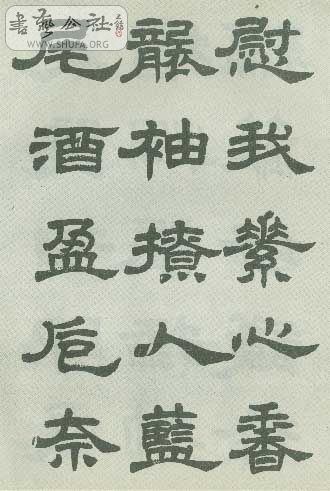 慰我素心香
襲袖撩人藍
尾酒盈卮奈
書藝公社
WWW.SHUFA.ORG